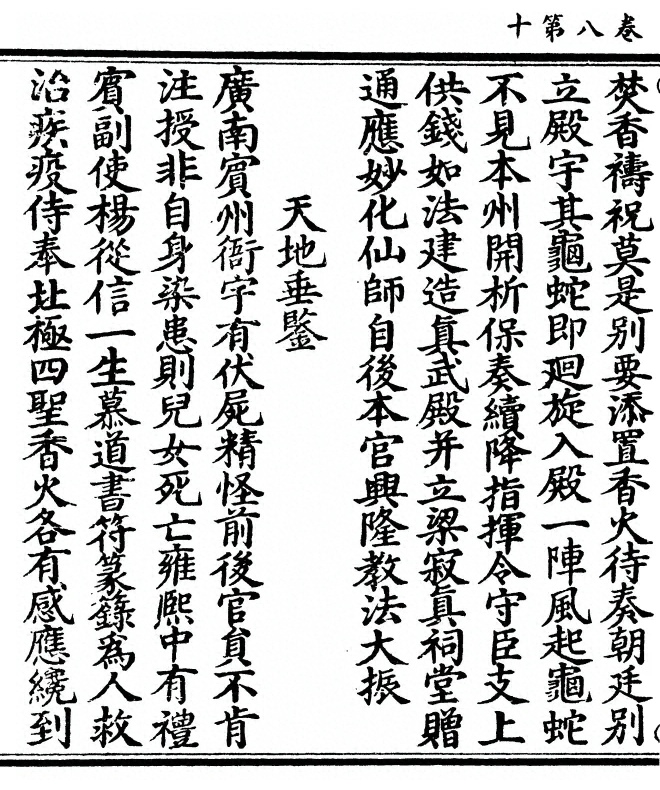 卷八第十
焚香禱祝莫是别要添置香火待奏朝廷别
立殿宇其龜蛇即迴旋入殿一陣風起龜蛇
不見本州開析保奏續降指揮令守臣支上
供錢如法建造真武殿并立梁寂真祠堂贈
通應妙化仙師自後本官興隆教法大振
天地垂鍳
廣南賔州衙宇有伏屍精怪前後官貟不肯
注授非自身染患則兒女死亡雍熙中有禮
賔副使楊從信一生慕道書符篆籙爲人救
治疾疫侍奉北極四聖香火各有感應纔到